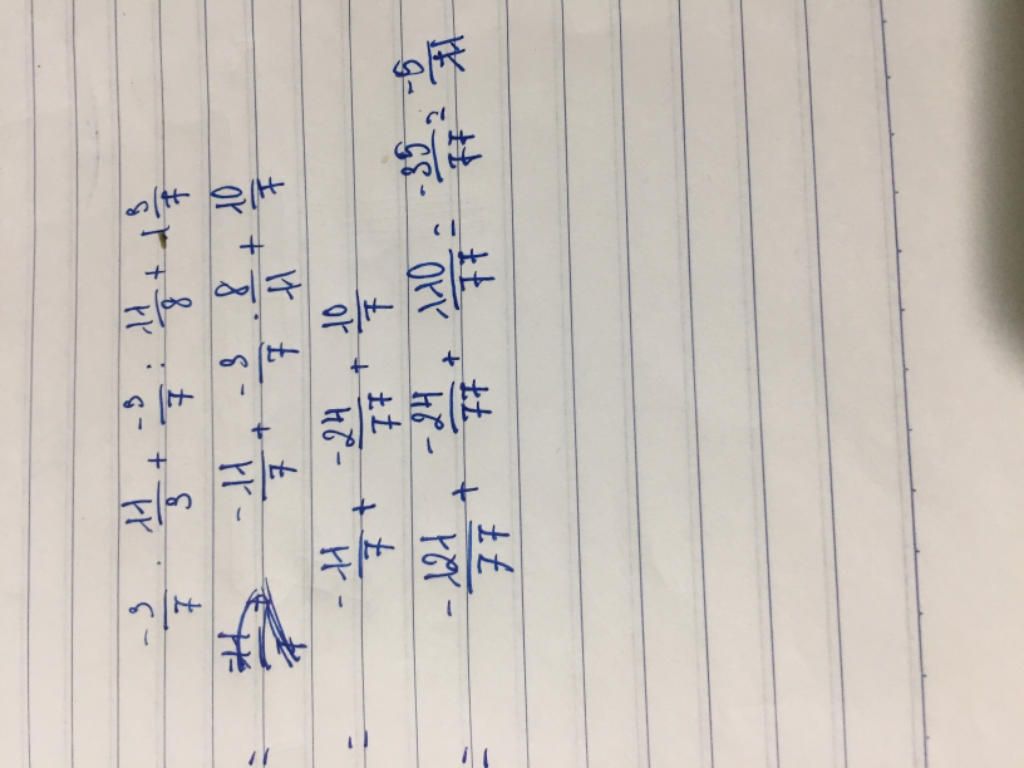 -3/7 . 11/3 + -3/7 : 11/8 + 1 3/7
= -11/7 + -3/7 . 8/11 + 10/7
= -11/7 + -24/77 + 10/7
= -121/77 + -24/77 + 110/77 = -35/77 = -5/11